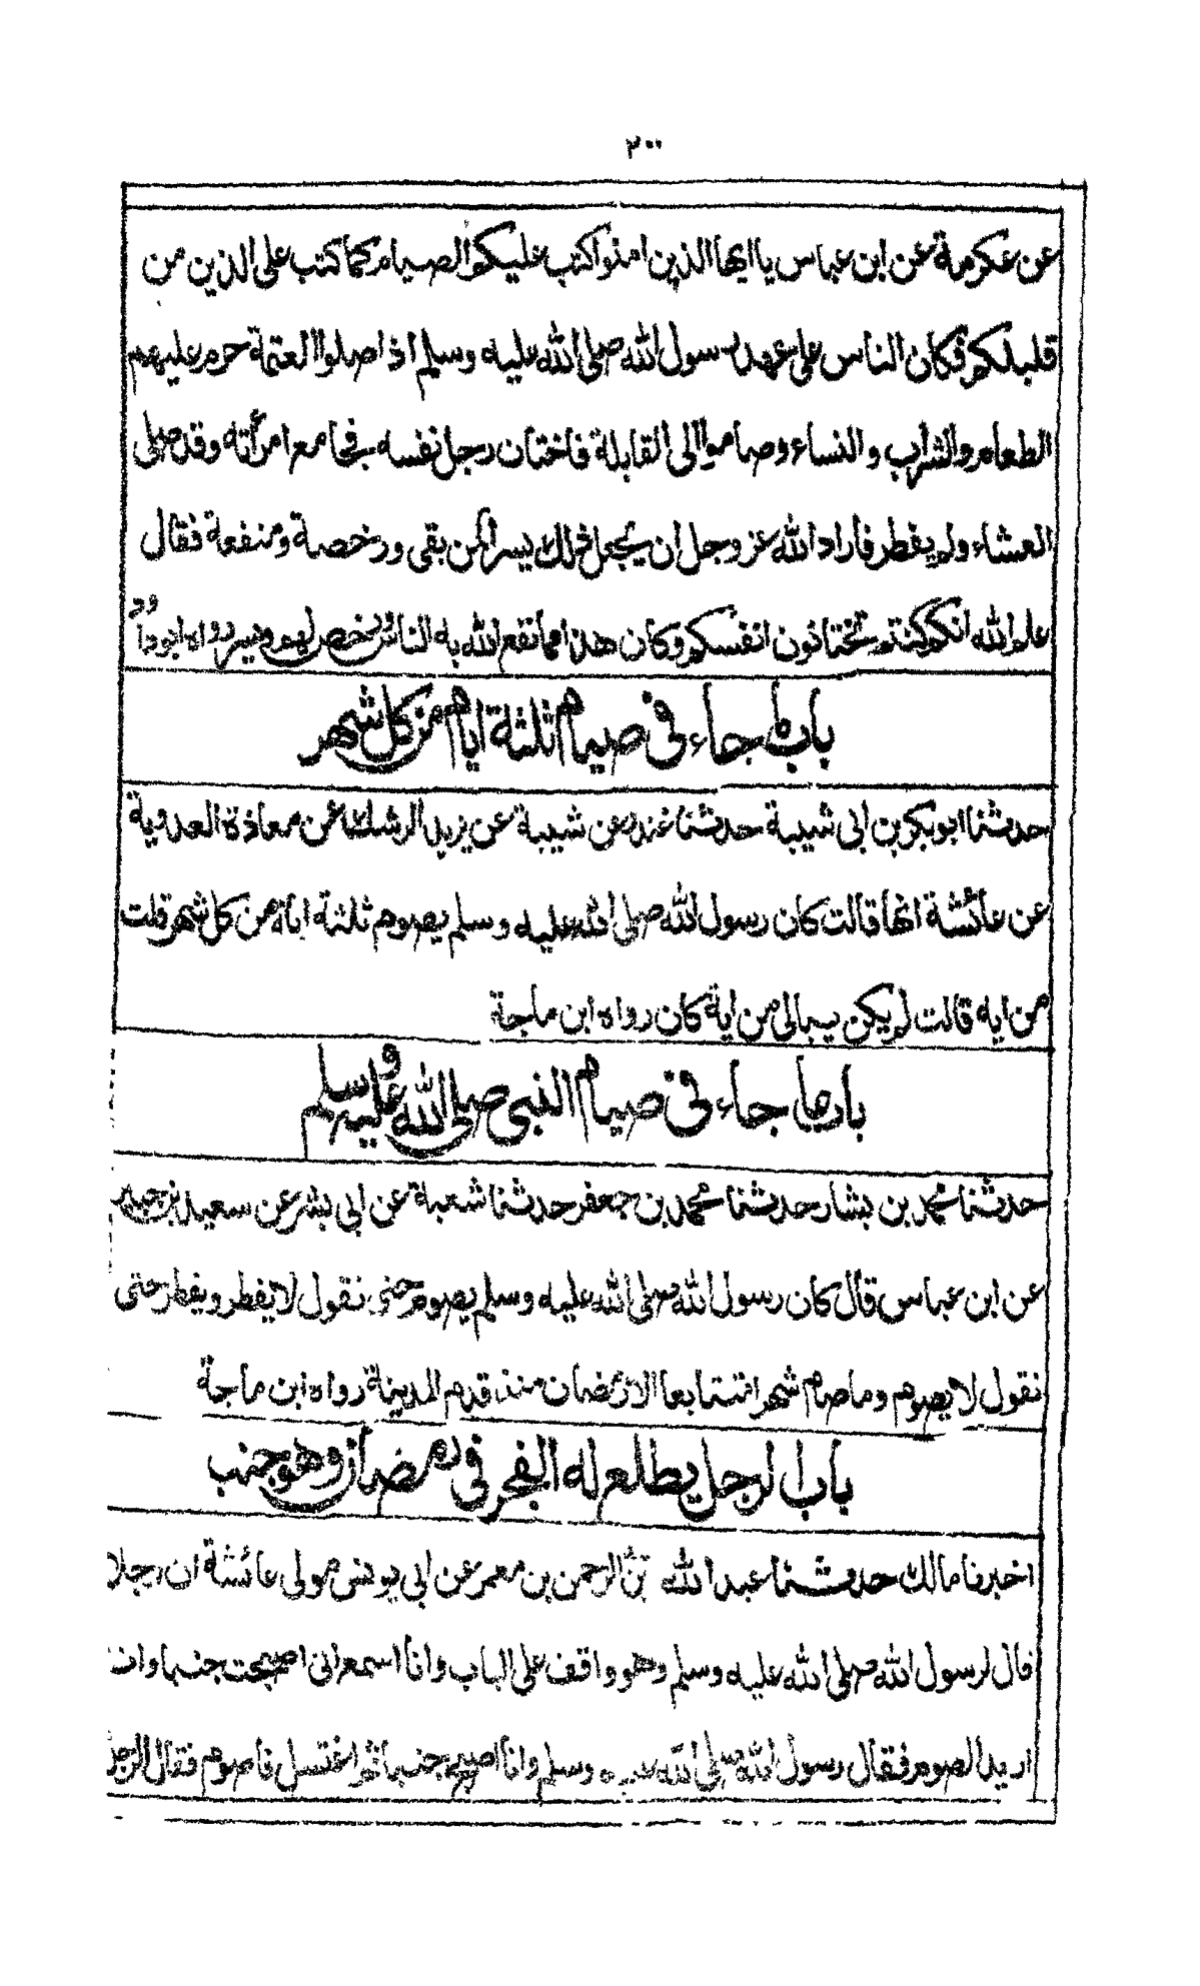 ٢٠٠
عن عكرمة عن ابن عباس يا ايها الذين امنوا كتب عليكم الصيام كما كتب على الذين من
قبلكم فكان الناس على عهد رسول الله صلى الله عليه وسلم اذا صلوا العتمة حرم عليهم
الطعام والشراب والنساء وصاموا الى القابلة فاختان رجل نفسه فجامع امرأته وقد صلى
العشاء ولم يفطر فأراد الله عز وجل ان يجعل ذلك يسرا لمن بقى ورخصة ومنفعة فقال
علم الله انكم كنتم تختانون انفسكم وكان هذا مما نفع الله به الناس ورخص لهم ويسر رواه ابوداؤد
باب ما جاء فى صيام ثلثة ايام من كل شهر
حدثنا ابو بكر بن ابى شيبة حدثنا غندر عن شيبة عن يزيد الرشك عن معاذة العدوية
عن عائشة انها قالت كان رسول الله صلى الله عليه وسلم يصوم ثلثة اياة من كل شهر قلت
من ايه قالت لم يكن يبالى من اية كان رواه ابن ماجة
باب ما جاء فى صيام النبى صلى الله عليه وسلم
حدثنا محمد بن بشار حدثنا محمد بن جعفر حدثنا شعبة عن ابى بشر عن سعيد بن جبير
عن ابن عباس قال كان رسول الله صلى الله عليه وسلم يصوم حتى نقول لا يفطر ويفطر حتى
نقول لا يصوم وما صام شهرا متتابعا الا رمضان منذ قدم المدينة رواه ابن ماجة
باب الرجل يطلع له الفجر فى رمضان وهو جنب
اخبرنا مالك حدثنا عبد الله بن الرحمن بن معمر عن ابى يونس مولى عائشة ان رجلا
قال لرسول الله صلى الله عليه وسلم وهو واقف على الباب وانا اسمع انى اصبحت جنبا وانا
اريد الصوم فقال رسول الله صلى الله عليه وسلم وانا اصبح جنبا ثم اغتسل فاصوم فقال الرجل